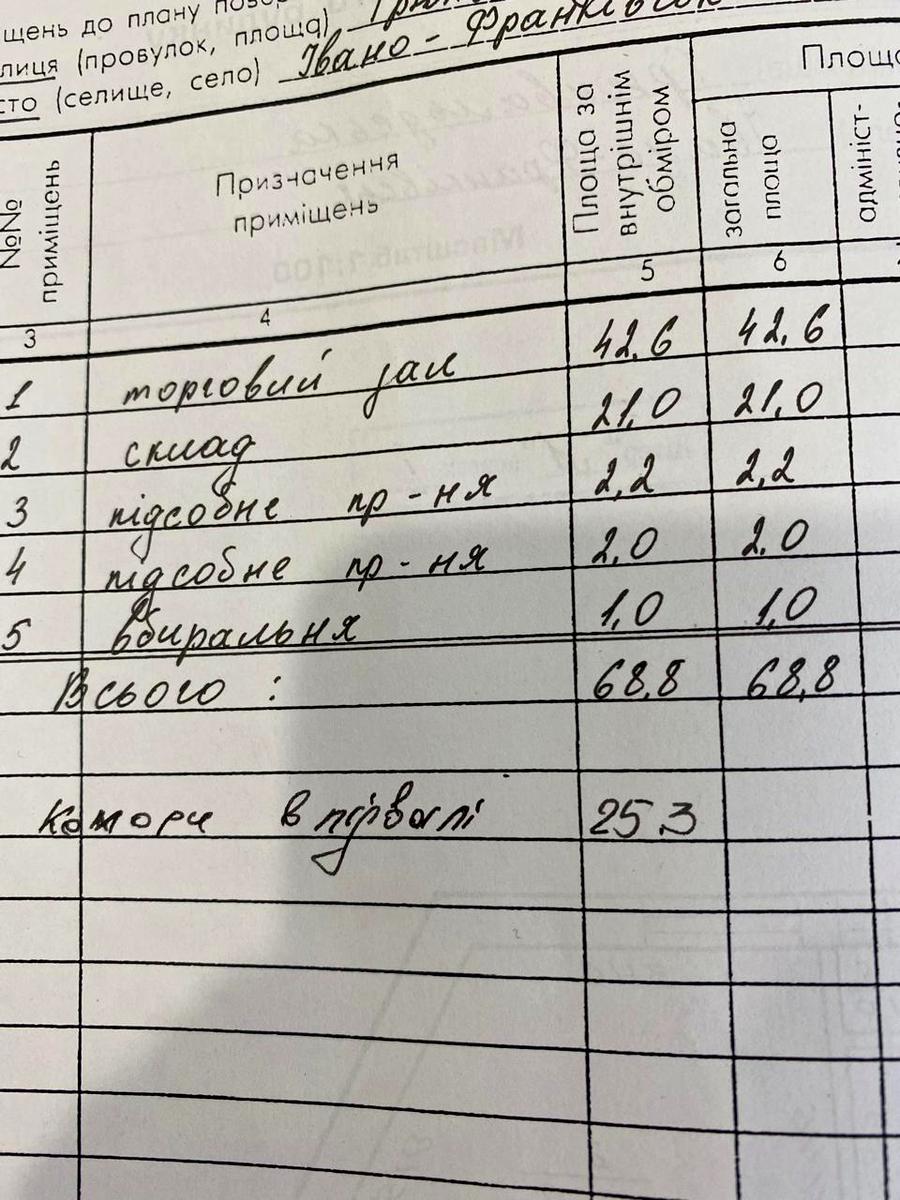 щень до плану
лиця (провулок, площа)
сто (селище, село) Івано-Франківськ
№№ приміщень
Призначення приміщень
Площа за внутрішнім обміром
Площа
загальна площа
адмініст-
3 4 5 6
1 торговий зал 42.6 42.6
2 склад 21,0 21,0
3 підсобне пр-ня 2,2 2,2
4 підсобне пр-ня 2,0 2.0
5 вбиральня 1,0 1,0
Всього : 68,8 68,8
комори в підвалі 25.3